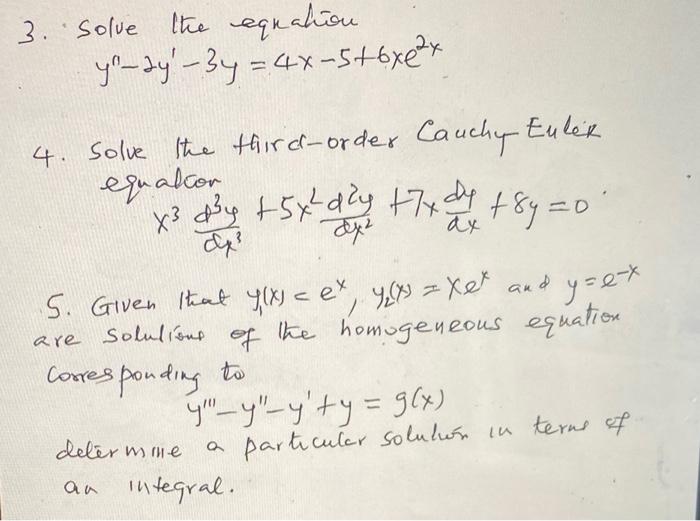 3. Solve the equation
y" - 2y' - 3y = 4x - 5 + 6xe^{2x}
4. Solve the third-order Cauchy-Euler
equation
x³ d³y/dx³ + 5x² d²y/dx² + 7x dy/dx + 8y = 0
5. Given that y₁(x) = eˣ, y₂(x) = xeˣ and y = e⁻ˣ
are solutions of the homogeneous equation
corresponding to
y''' - y" - y' + y = g(x)
determine a particular solution in terms of
an integral.